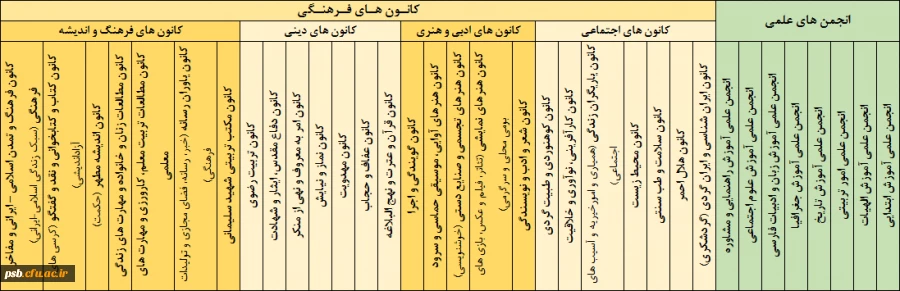 انجمن های علمی
انجمن علمی آموزش ابتدایی
انجمن علمی آموزش الهیات
انجمن علمی امور تربیتی
انجمن علمی آموزش تاریخ
انجمن علمی آموزش جغرافیا
انجمن علمی آموزش زبان و ادبیات فارسی
انجمن علمی آموزش علوم اجتماعی
انجمن علمی آموزش راهنمایی و مشاوره
کانـون هـای فـرهنـگـی
کانون های اجتماعی
کانون ایران شناسی و ایران گردی (گردشگری)
کانون هلال احمر
کانون سلامت و طب سنتی
کانون محیط زیست
کانون یاریگران زندگی (همیاری و امورخیریه و آسیب های
اجتماعی)
کانون کارآفرینی، نوآوری و خلاقیت
کانون کوهنوردی و طبیعت گردی
کانون های ادبی و هنری
کانون شعر و ادب و نویسندگی
کانون هنرهای نمایشی (تئاتر، فیلم و عکس، بازی های
بومی محلی و سرگرمی)
کانون هنرهای تجسمی و صنایع دستی (خوشنویسی)
کانون هنرهای آوایی، موسیقی حماسی و سرود
کانون گویندگی و اجرا
کانون های دینی
کانون قرآن و عترت و نهج البلاغه
کانون عفاف و حجاب
کانون مهدویت
کانون نماز و نیایش
کانون امر به معروف و نهی از منکر
کانون دفاع مقدس، ایثار و شهادت
کانون تربیت رضوی
کانون های فرهنگ و اندیشه
کانون مکتب تربیتی شهید سلیمانی
کانون یاوران رسانه (خبر، رسانه، فضای مجازی و تولیدات
فرهنگی)
کانون مطالعات تربیت معلم، کارورزی و مهارت های
معلمی
کانون مطالعات زنان و خانواده و مهارت های زندگی
کانون اندیشه مطهر (حکمت)
کانون کتاب و کتابخوانی و نقد و گفتگو (کرسی های
آزاداندیشی)
کانون فرهنگ و تمدن اسلامی – ایرانی و مفاخر
فرهنگی (سبک زندگی اسلامی -ایرانی)
psb.cfu.ac.ir